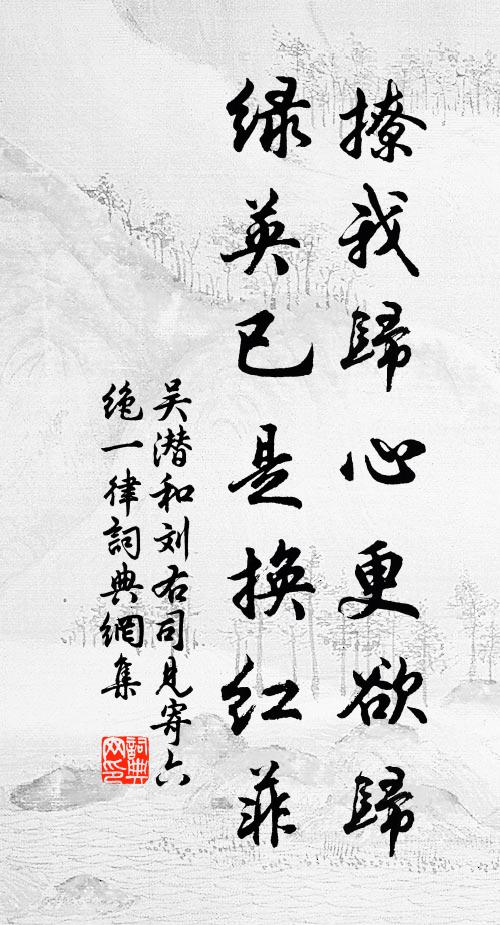 撩我歸心更欲歸
绿英已是换红菲
吴潜和刘右司见寄六
绝一律詞典網集
詞典
网印